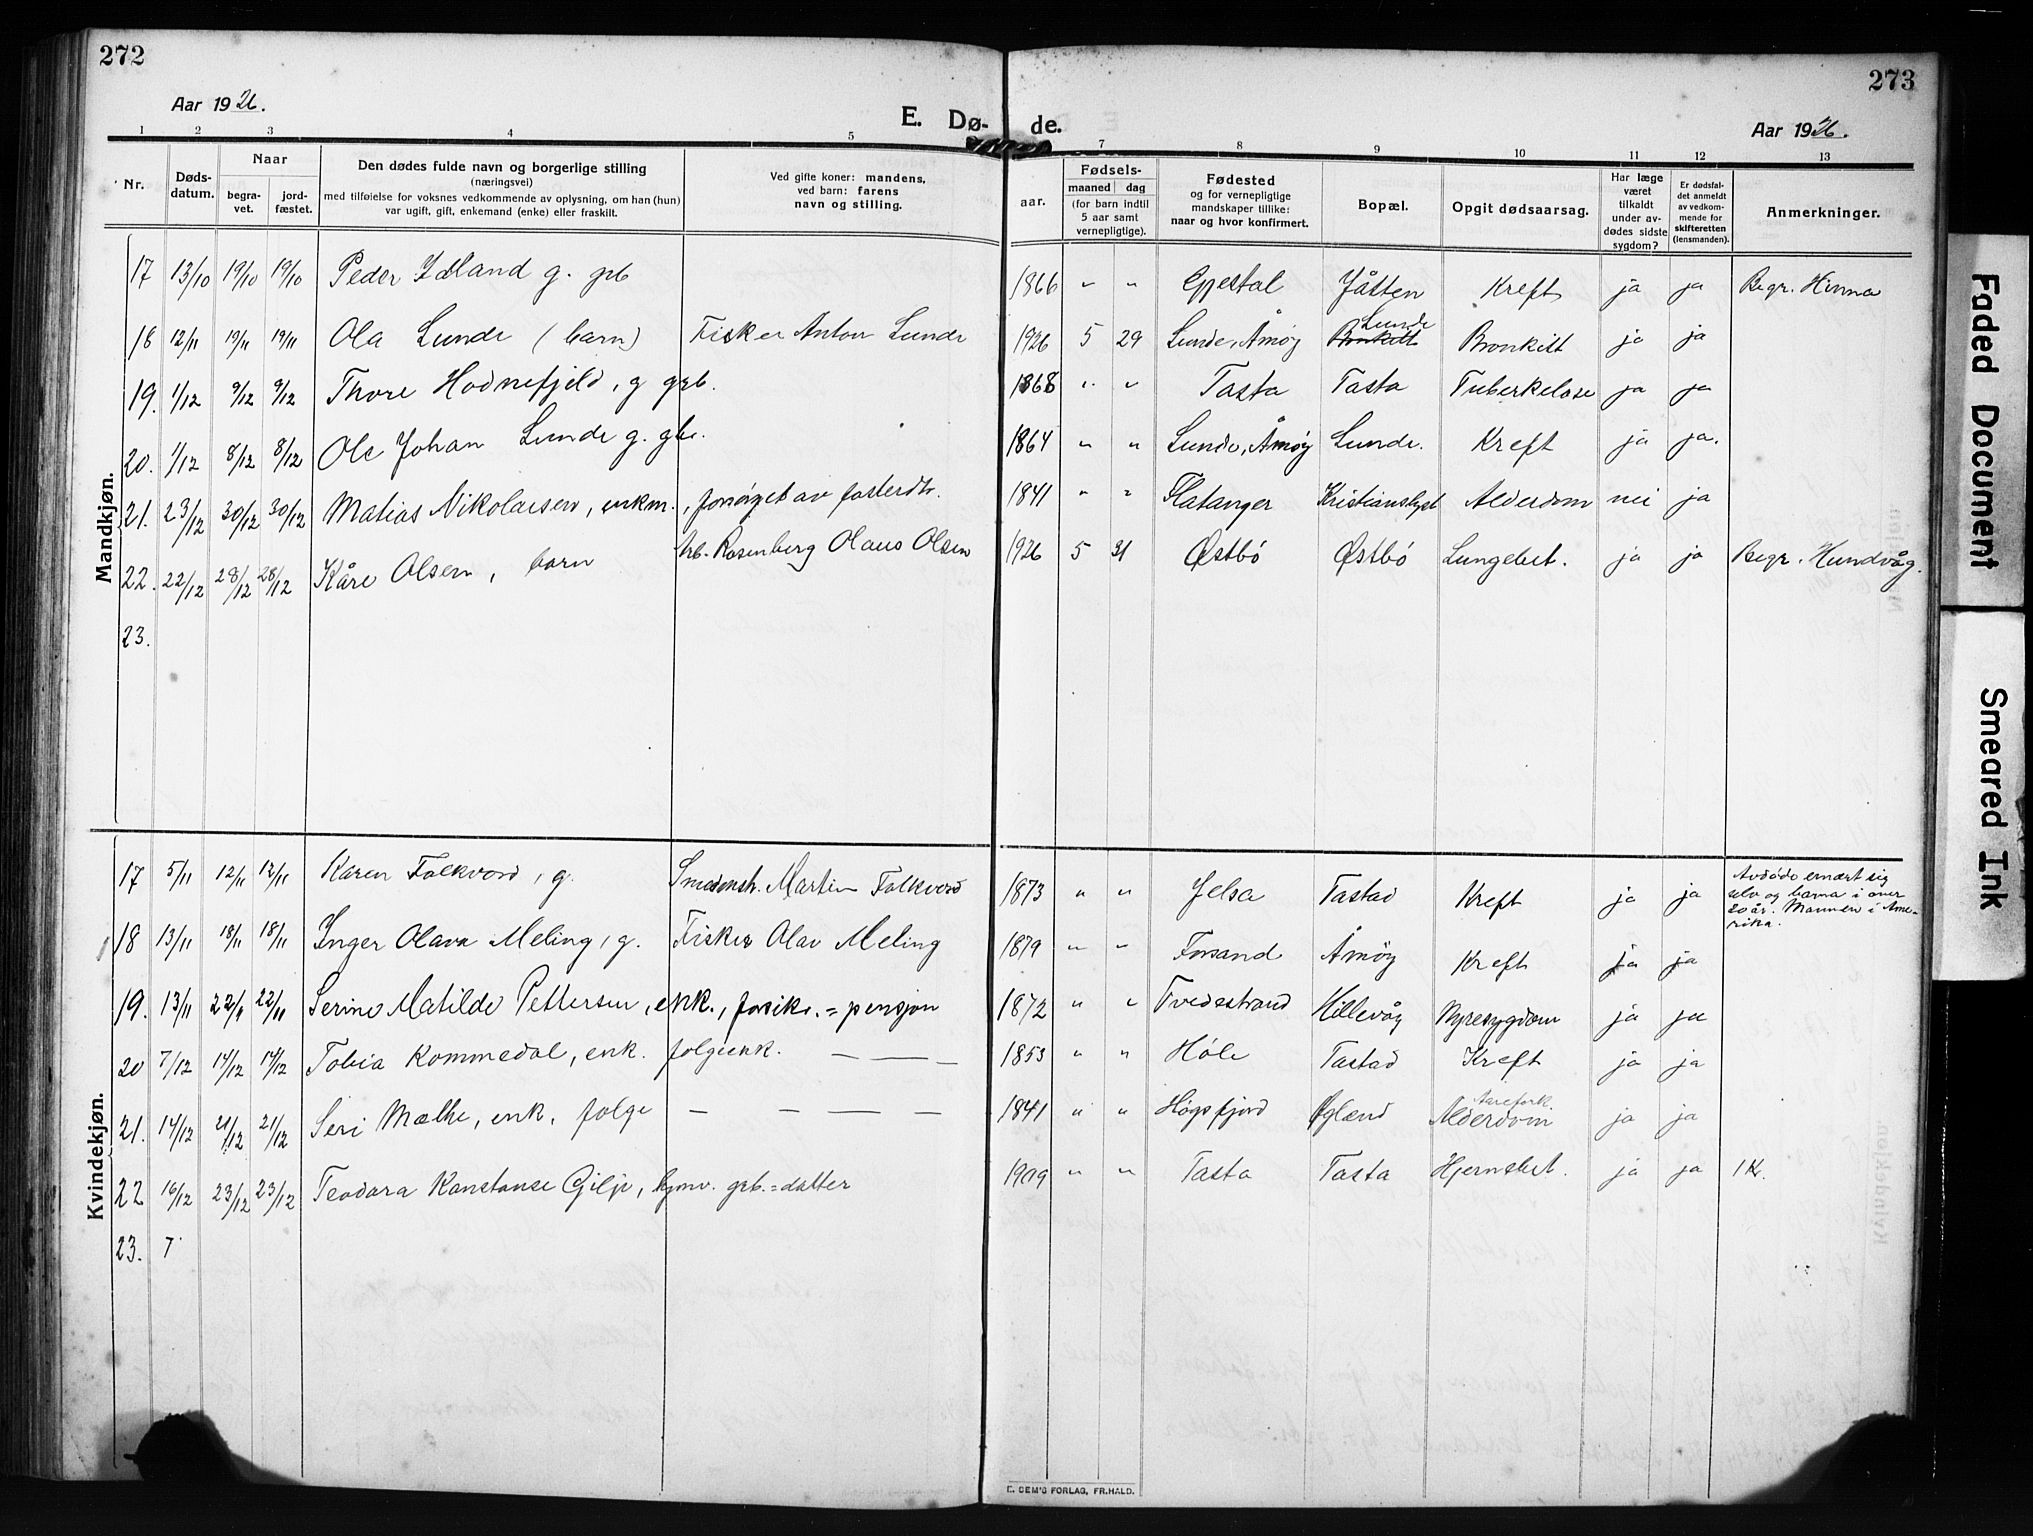 272
273
Aar 1926.
E. Dø-
de.
Aar 1926.
1 2 3 4 5 7 8 9 10 11 12 13
Nr.
Døds-
datum.
Naar
begra-
vet.
jord-
fæstet.
Den dødes fulde navn og borgerlige stilling
(næringsvei)
med tilføielse for voksnes vedkommende av oplysning, om han (hun)
var ugift, gift, enkemand (enke) eller fraskilt.
Ved gifte koner: mandens,
ved barn: farens
navn og stilling.
aar.
Fødsels-
maaned dag
(for barn indtil
5 aar samt
vernepligtige).
Fødested
og for vernepligtige
mandskaper tillike:
naar og hvor konfirmert.
Bopæl.
Opgit dødsaarsag.
Har læge
været
tilkaldt
under av-
dødes sidste
sygdom?
Er dødsfal-
det anmeldt
av vedkom-
mende for
skifteretten
(lensmanden).
Anmerkninger.
Mandkjøn.
17 13/10 19/10 19/10 Peder Idland g. grb 1866 " " Gjestal Jåtten Kreft ja ja Begr. Hinna
18 12/11 19/11 19/11 Ola Lunde (barn) Fisker Anton Lunde 1926 5 29 Lunde, Åmøy Bronkitt Lunde Bronkitt ja ja
19. 1/12 9/12 9/12 Thore Hodnefjeld, g grb. 1868 " " Tasta Tasta Tuberkelose ja ja
20. 1/12 8/12 8/12 Ole Johan Lunde g. gbr. 1864 " " Lunde, Åmøy Lunde. Kreft ja ja.
21. 23/12 30/12 30/12 Matias Nikolaisen, enkm., forsörget av fosterdtr. 1841 " " Flatanger Kristianslyst Alderdom nei ja
22. 22/12 28/12 28/12 Kåre Olsen, barn Arb. Rosenberg Olaus Olsen 1926 5 31 Østbö Østbö Lungebet. ja ja Begr. Hundvåg.
23.
Kvindekjøn.
17 5/11 12/11 12/11 Karen Folkvord, g. Smedmstr. Martin Folkvord 1873 " " Jelsa Tastad Kreft ja ja Avdöde ernært sig
selv og barna i over
20 år. Mannen i Ame-
rika.
18 13/11 18/11 18/11 Inger Olava Meling, g. Fisker Olav Meling 1879 " " Forsand Åmöy Kreft ja ja
19. 13/11 22/11 22/11 Serine Matilde Pettersen, enk., forsikr.=pensjon 1872 " " Tvedestrand Hillevåg Nyresygdom ja ja
20 7/12 14/12 14/12 Tobia Kommedal, enk. folgeenk. — — — 1853 " " Höle Tastad Kreft ja ja
21. 14/12 21/12 21/12 Seri Mælhe, enk. folge — — — — 1841 " " Høgsfjord Øglænd Alderdom Aarefork. ja ja
22 16/12 23/12 23/12 Teodora Konstanse Gilje, hjmv. grb.=datter 1909 " " Tasta Tasta Hjernebet. ja ja 1 K.
23. 7
E. SEM'S FORLAG, FR.HALD.
Faded Document
Smeared Ink